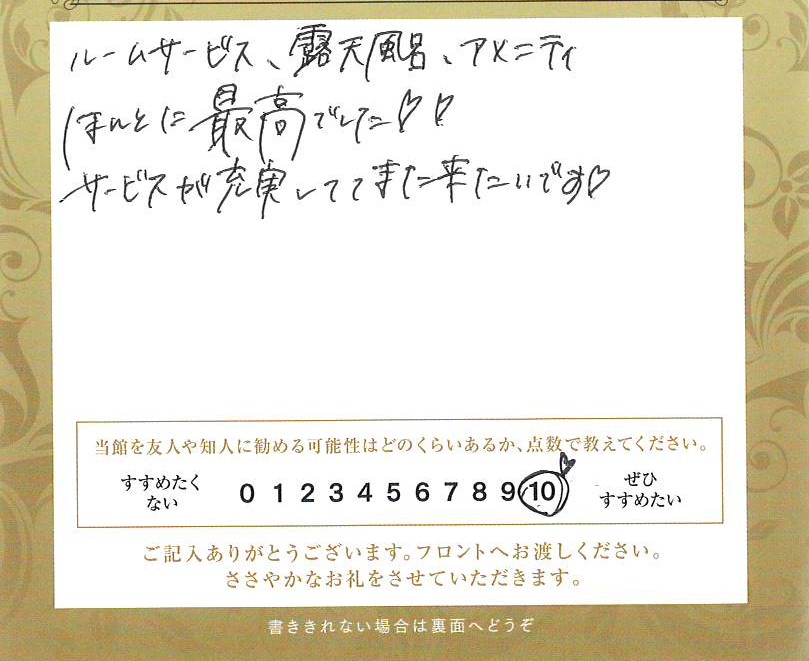 ルームサービス、露天風呂、アメニティ
ほんとに最高でした♡♡
サービスが充実しててまた来たいです♡
当館を友人や知人に勧める可能性はどのくらいあるか、点数で教えてください。
すすめたく
ない
0 1 2 3 4 5 6 7 8 9 10
ぜひ
すすめたい
ご記入ありがとうございます。フロントへお渡しください。
ささやかなお礼をさせていただきます。
書ききれない場合は裏面へどうぞ